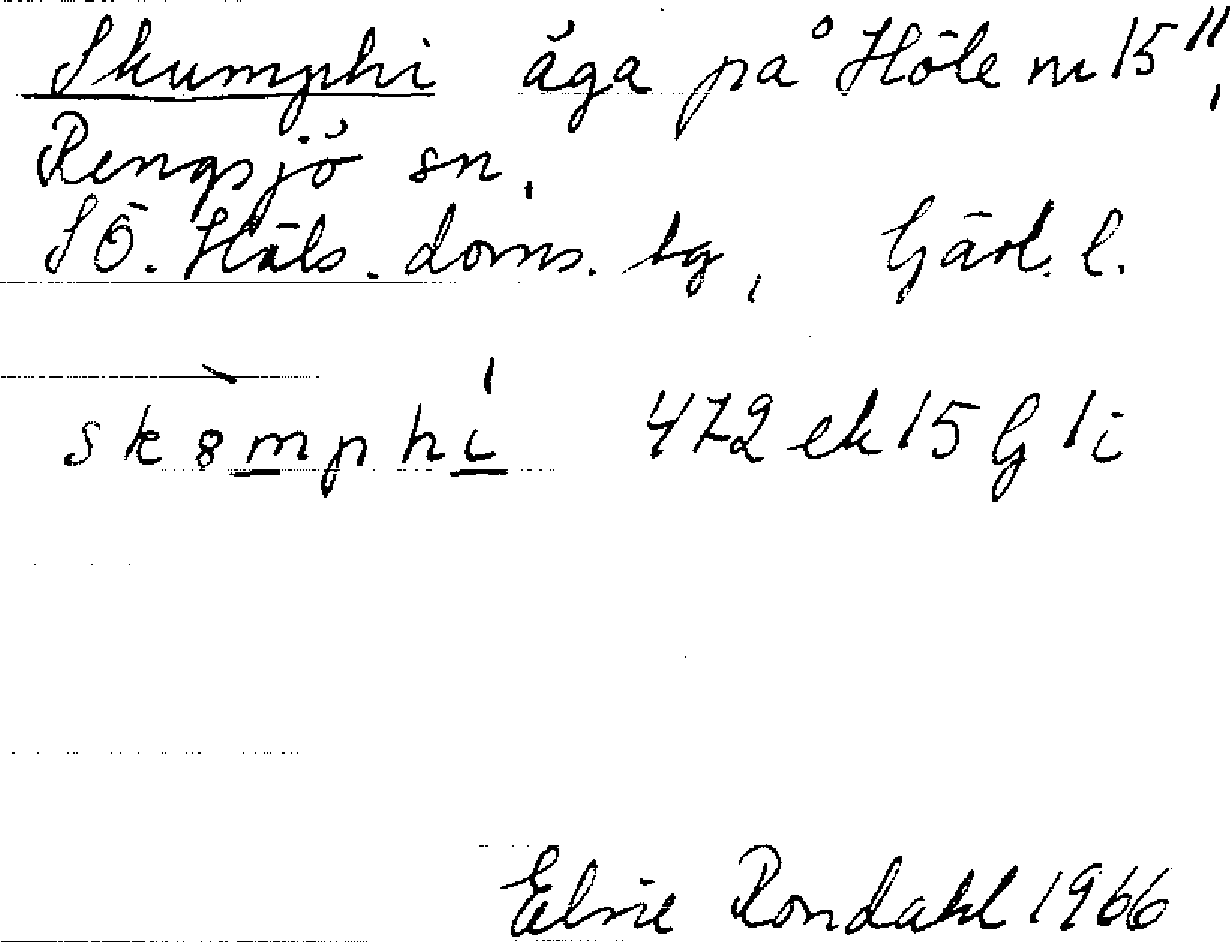 Skumphi äga på Höle nr 15",
Rengsjö sn,
SÖ. Häls. doms. tg, Gävl. l.
sk8mphi 472 ek 15 G 1i
Elsie Rondahl 1966